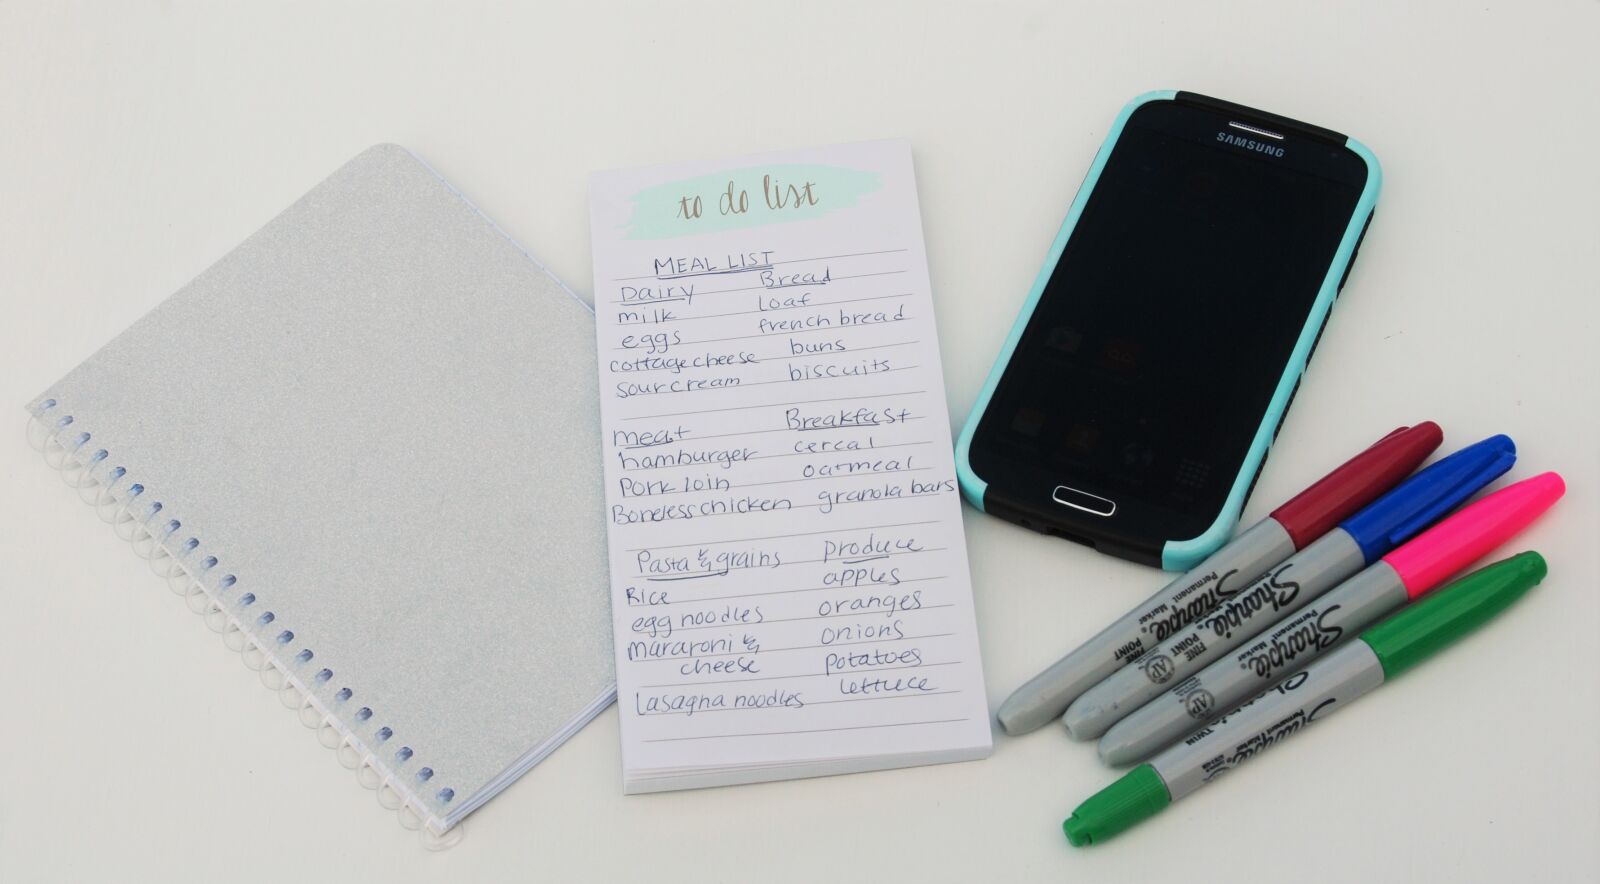 to do list
MEAL LIST
Dairy
milk
eggs
cottage cheese
sour cream
Bread
loaf
french bread
buns
biscuits
meat
hamburger
Pork loin
Boneless chicken
Breakfast
cereal
oatmeal
granola bars
Pasta & grains
Rice
egg noodles
mararoni &
cheese
lasagna noodles
produce
apples
oranges
onions
potatoes
lettuce
SAMSUNG
Sharpie
Permanent
Marker
FINE
POINT
Sharpie
Permanent
Marker
FINE
POINT
AP
Sharpie
Permanent
Marker
AP
TWIN
Sharpie
Permanent Marker